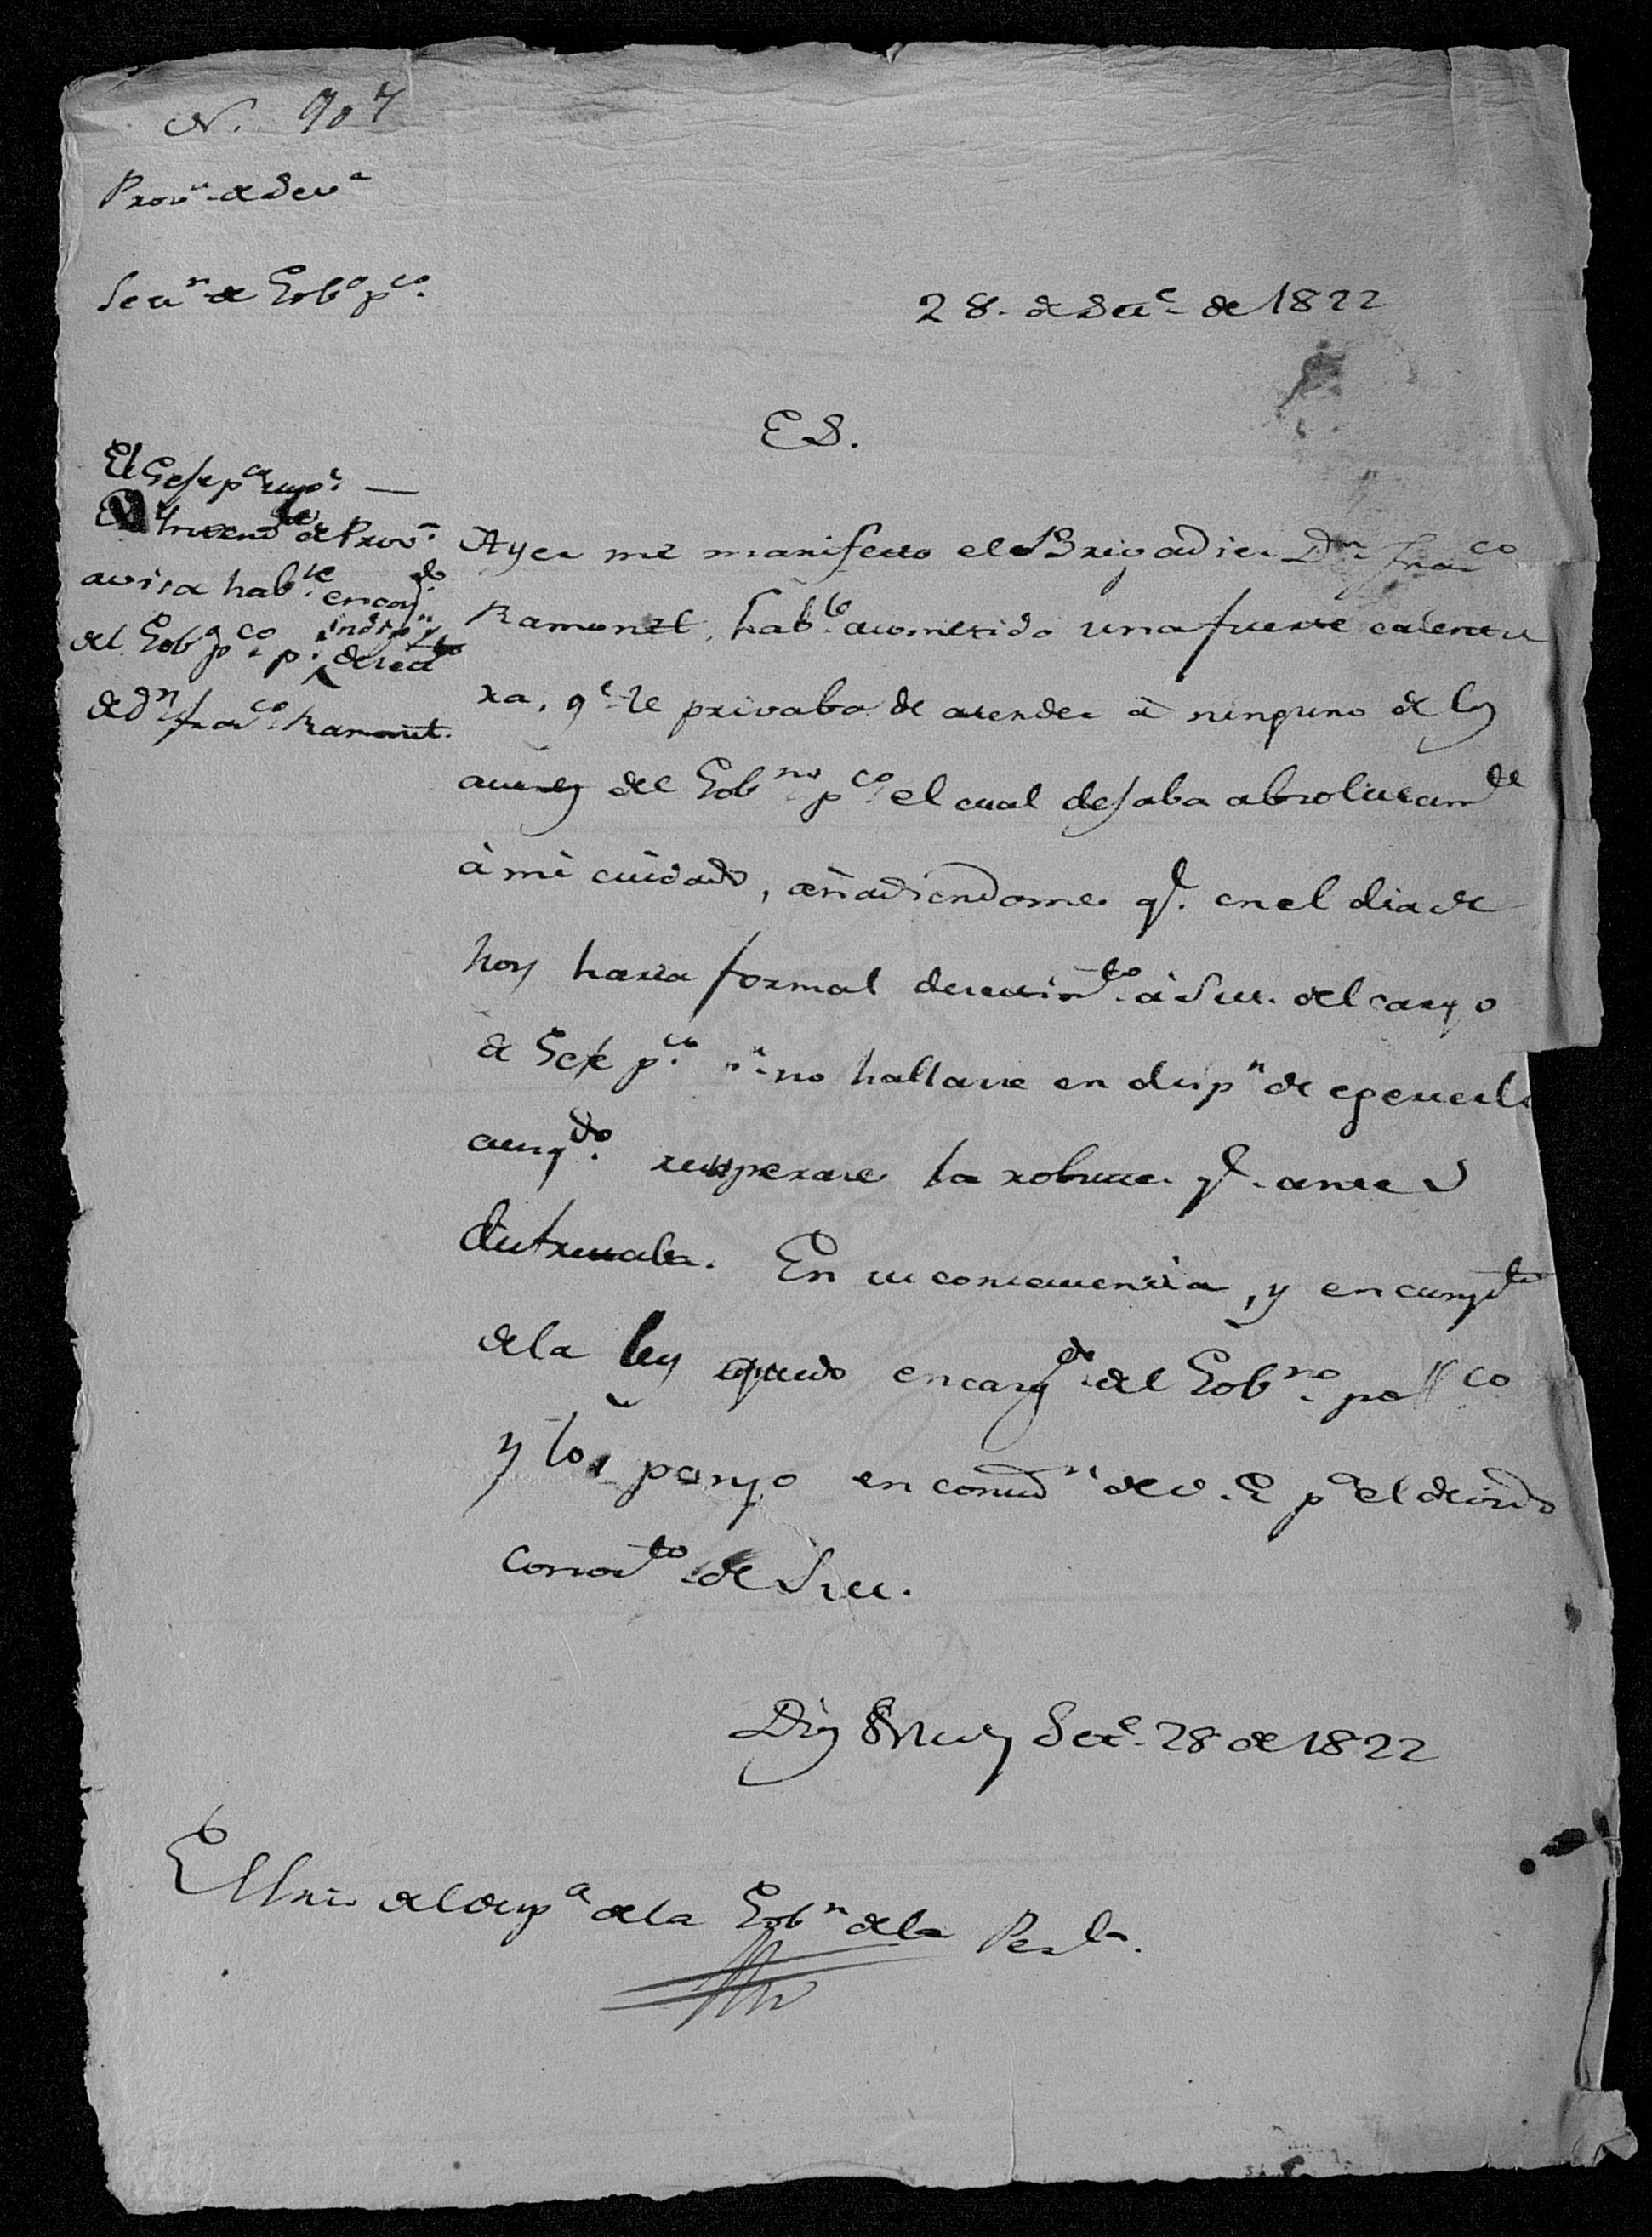 N. 907
Prov.ª de Sev.ª
Secc.n de Gob.o p.co
28. de Dic.e de 1822
E S.
El Gefe p.co sup.r —
El Intend.te de Prov.ª
avisa hab.se encarg.do
del Gob.o p.co p.r indisp.n y
desest.to
de D.n Fran.co Ramonet.
Ayer me manifesto el Brigadier D.n Fran.co
Ramonet, hab.le acometido una fuerte calentu
ra, q.e le privaba de atender à ninguno de los
asuntos del Gob.no p.co el cual dejaba absolutam.te
à mi cuidado, añadiendome q.e en el dia de
hoy haria formal desestim.to à S.M. del cargo
de Gefe p.co p.r no hallarse en disp.n de egercerlo
aun q.do recuperase la robustez q.e antes
disfrutaba. En su consecuencia, y en cumpl.to
de la ley quedo encarg.do del Gob.no pol.co
y lo pongo en conocim.to de V.E. p.ª el devido
conocim.to de S.M.
Dios &Mu.s Dic.e 28 de 1822
E S. Srio del Desp.o de la Gob.n de la Pen.la